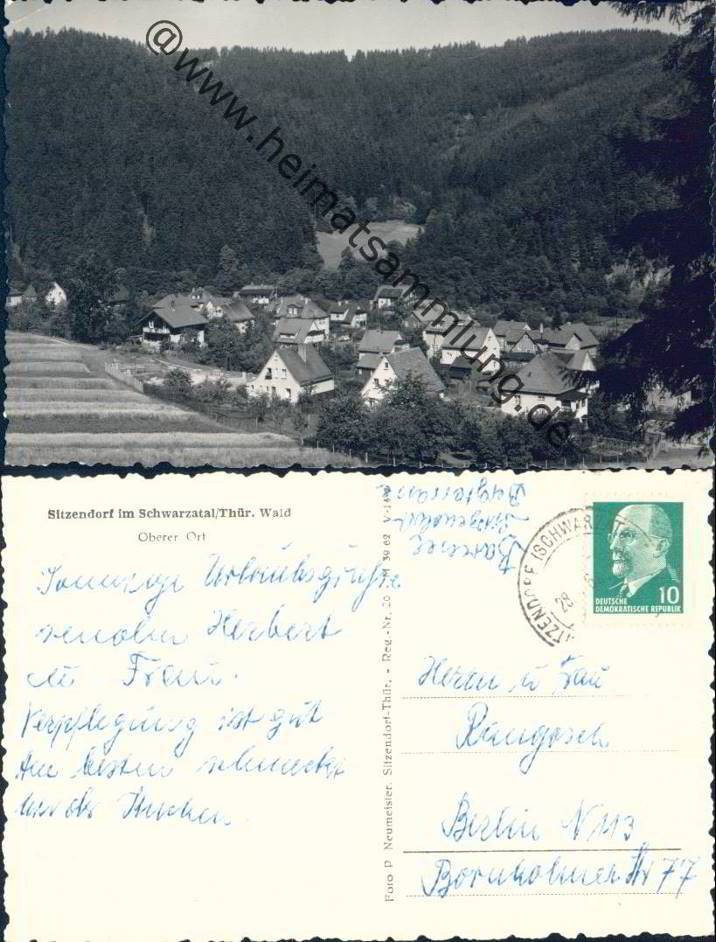 @www.heimatsammlung.de
Sitzendorf im Schwarzatal/Thür. Wald
Oberer Ort
Sonnige Urlaubsgrüße
senden Herbert
u Frau.
Verpflegung ist gut
Am besten schmeckt
uns der Kuchen.
Foto P. Neumeister, Sitzendorf-Thür. - Reg.-Nr. 20 39 62 V-14
Sitzendorf
SITZENDORF (SCHWAR
28
10
DEUTSCHE
DEMOKRATISCHE REPUBLIK
Herrn u Frau
Berlin N 113
Bornholmer Str 77